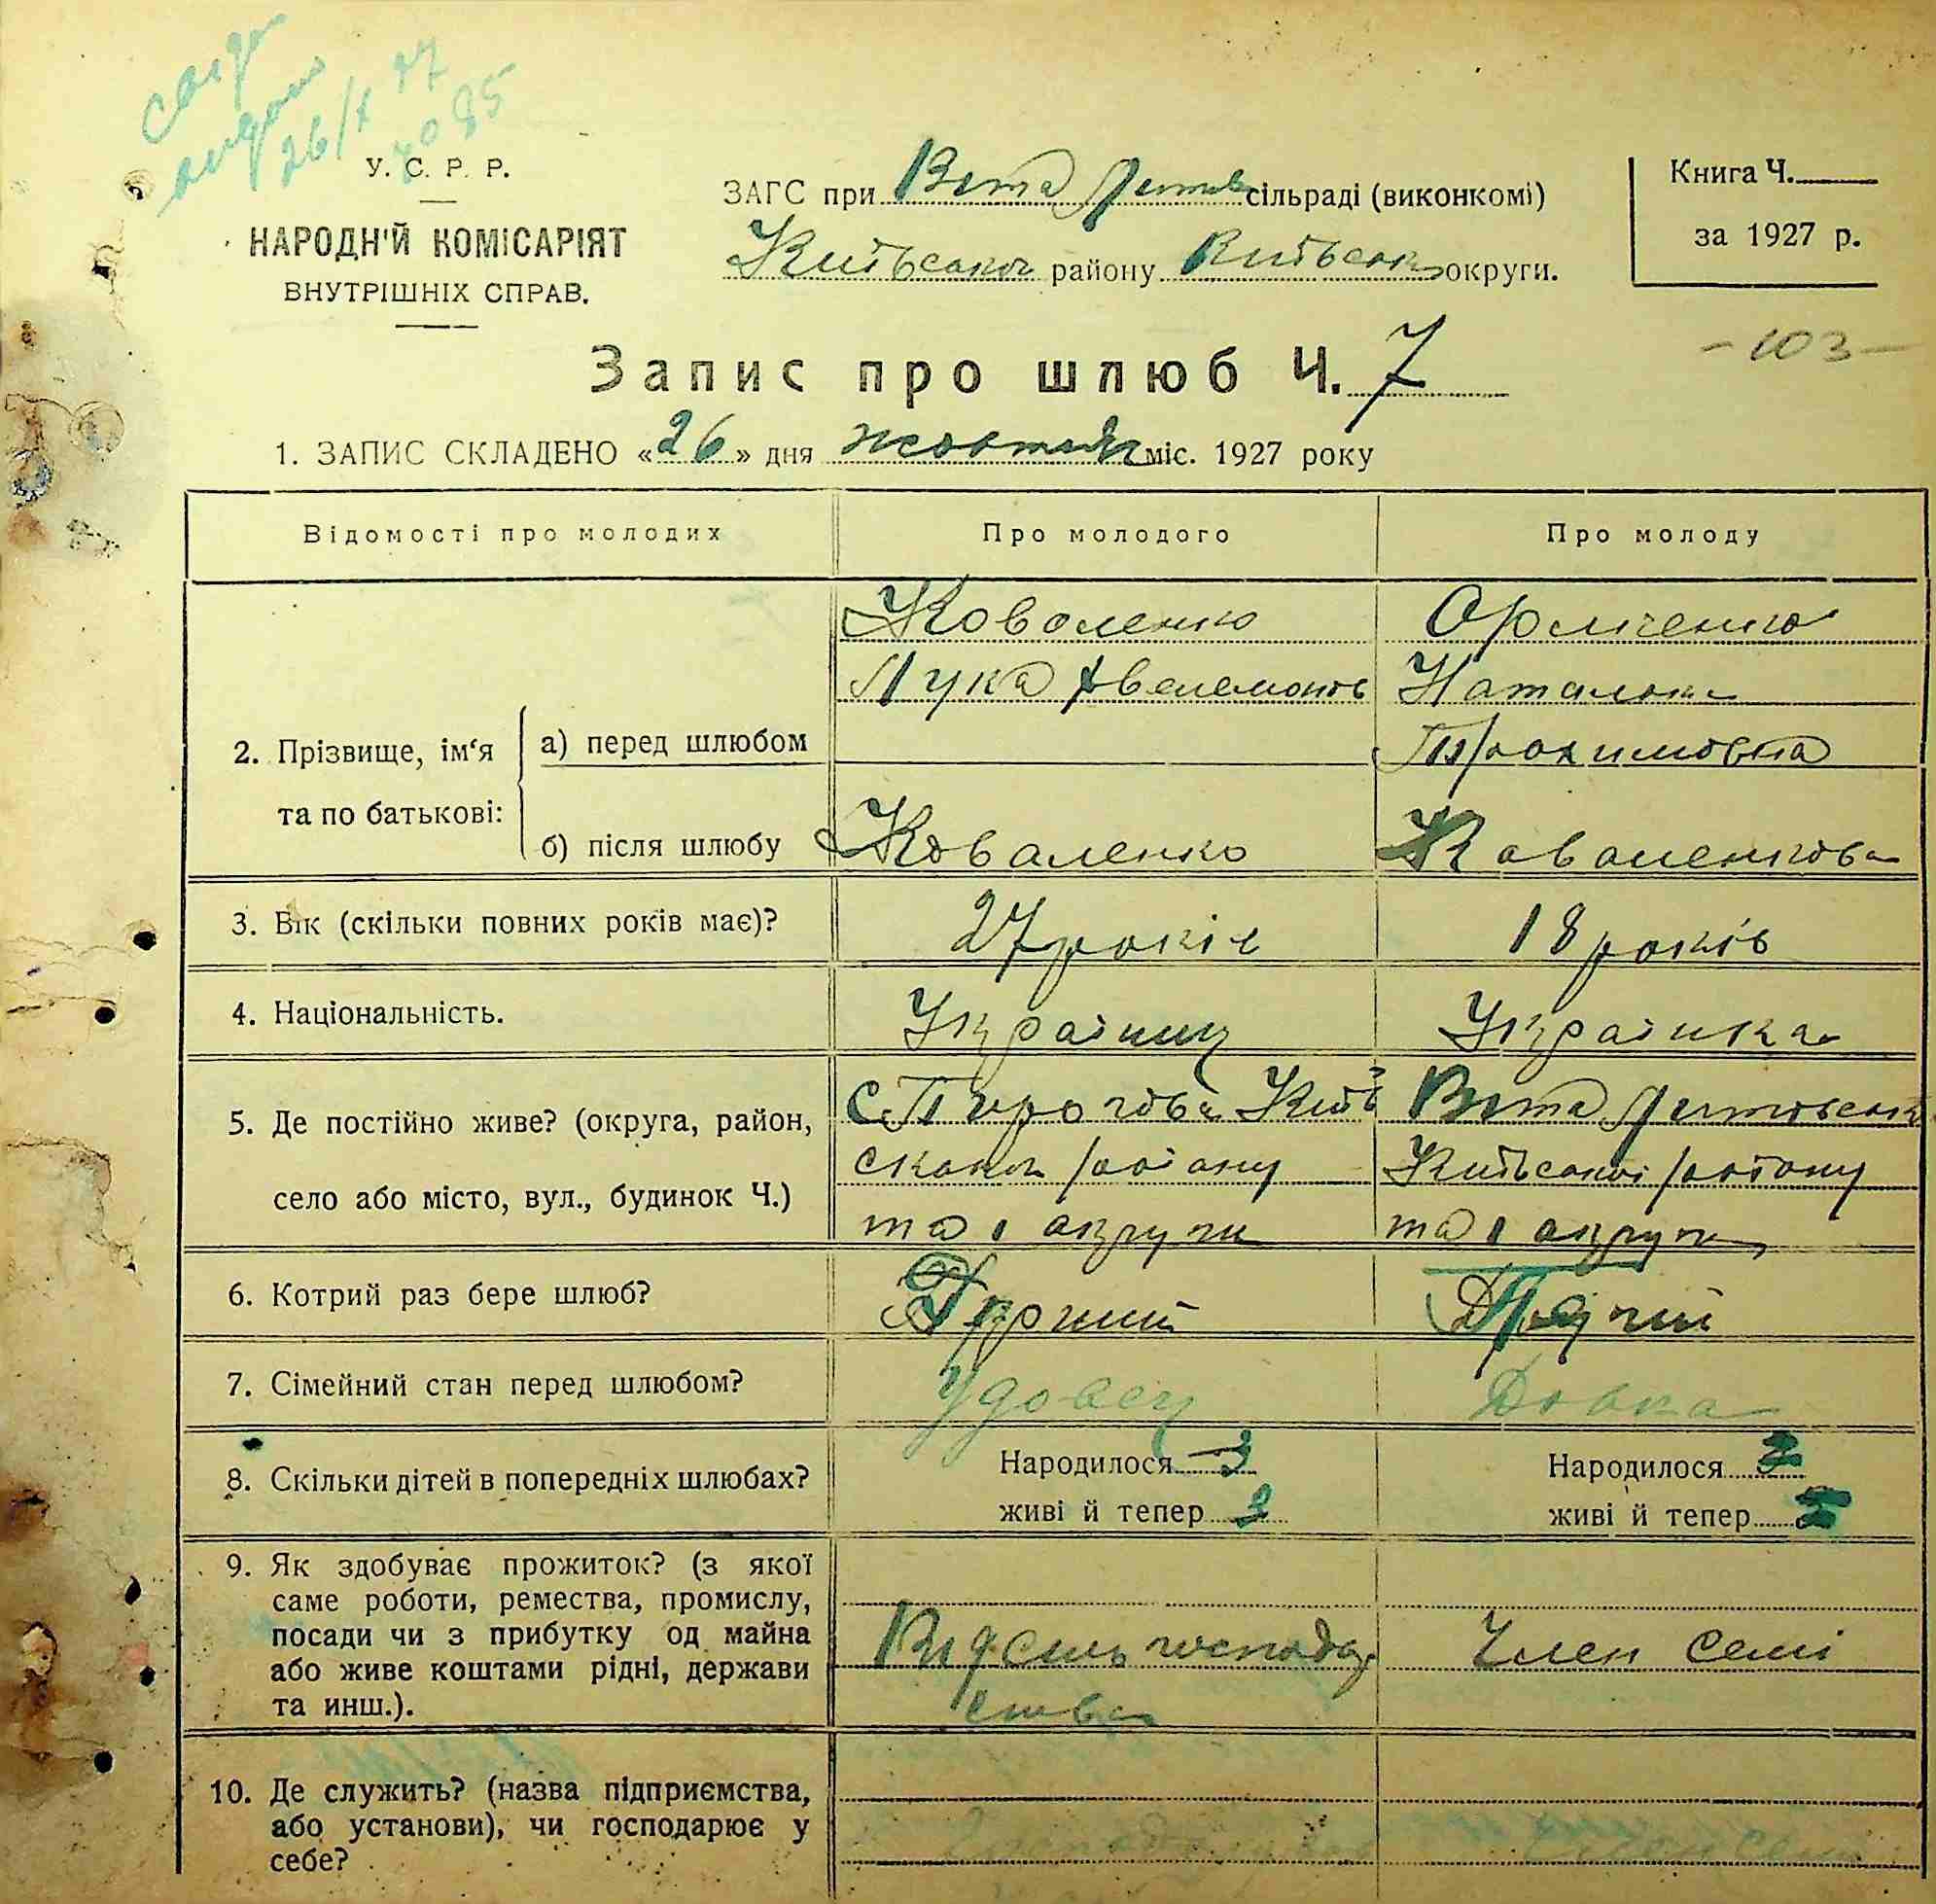 видано
26/X 27
У. С. Р. Р.
НАРОДН'Й КОМІСАРІЯТ
ВНУТРІШНІХ СПРАВ.
ЗАГС при Вета Литов сільраді (виконкомі)
Київськог району Київськ округи.
Книга Ч.
за 1927 р.
Запис про шлюб Ч. 7
- 103 -
1. ЗАПИС СКЛАДЕНО «26» дня жовтня міс. 1927 року
Відомості про молодих
Про молодого
Про молоду
2. Прізвище, ім‘я та по батькові:
а) перед шлюбом
Коваленко
Лука
Наталка
Трохимовна
б) після шлюбу
Коваленко
Коваленкова
3. Вік (скільки повних років має)?
27 років
18 років
4. Національність.
Українец
Українка
5. Де постійно живе? (округа, район,
село або місто, вул., будинок Ч.)
С. Пирогова Київ
ского району
та округи
Вита Литовська
Київської району
та округи
6. Котрий раз бере шлюб?
7. Сімейний стан перед шлюбом?
Удовец
Дівка
8. Скільки дітей в попередніх шлюбах?
Народилося 3
живі й тепер 3
Народилося
живі й тепер
9. Як здобуває прожиток? (з якої
саме роботи, ремества, промислу,
посади чи з прибутку од майна
або живе коштами рідні, держави
та инш.).
Від сель господар
ства
Член семі
10. Де служить? (назва підприємства,
або установи), чи господарює у
себе?